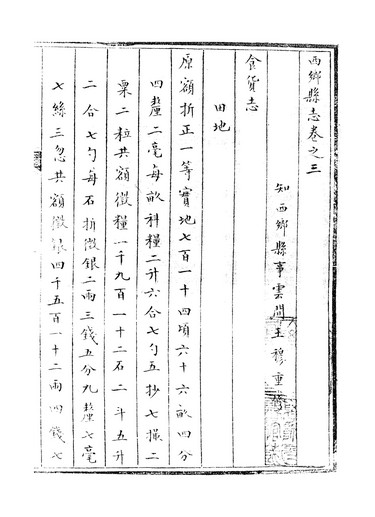 西鄉縣志卷之三
知西鄉縣事雲間王穆重
食貨志
田地
原額折正一等實地七百一十四頃六十六畝四分
四釐二毫每畝科糧二升六合七勺五抄七撮二
粟二粒共額徵糧一千九百一十二石二斗五升
二合七勺每石折徵銀二兩三錢五分九釐七毫
七絲三忽共額徵銀四千五百一十二兩四錢七